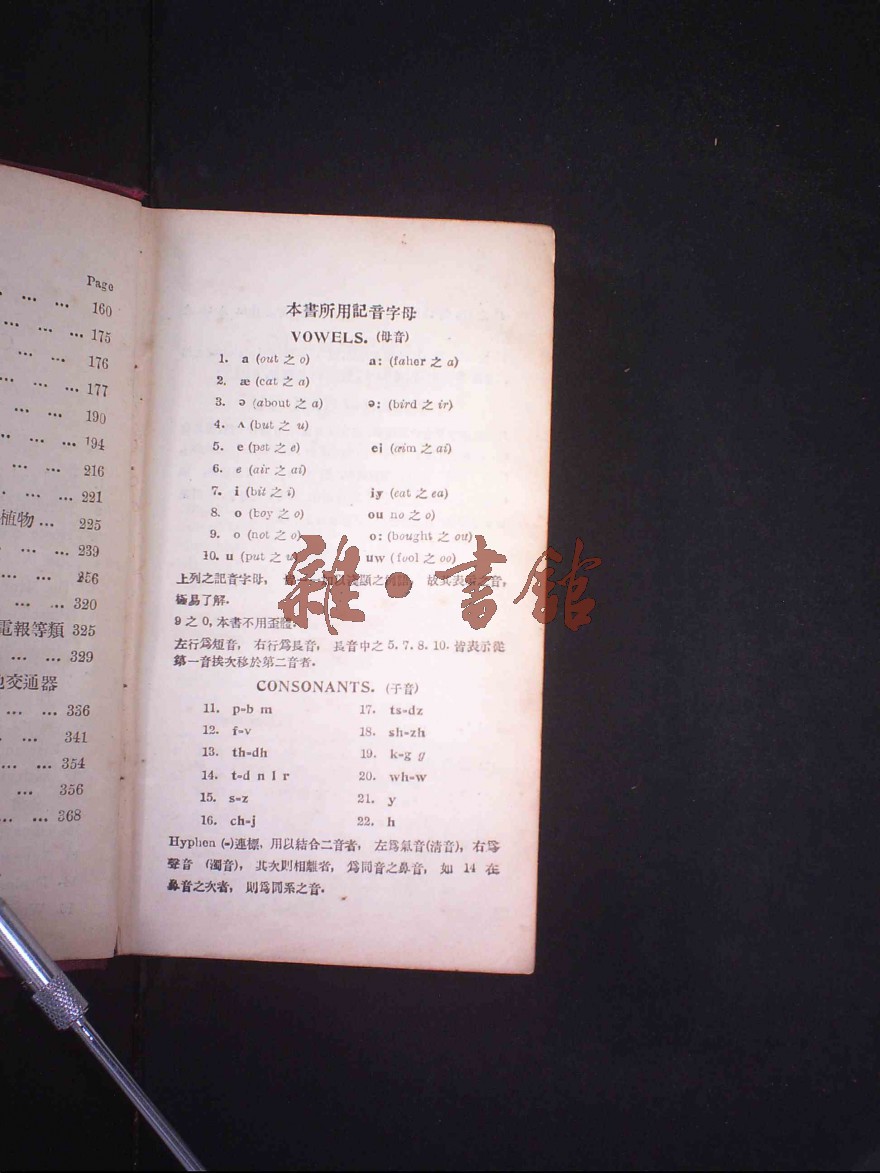 Page
... ... 160
... ... 175
... 176
... ... 177
... ... 190
... ... 194
... ... 216
... ... 221
植物 ... 225
... ... 239
... ... 256
... ... 320
電報等類 325
... ... 329
交通器
... ... 336
... 341
... ... 354
... 356
... ... 368
本書所用記音字母
VOWELS. (母音)
1. a (out 之 o) a: (faher 之 a)
2. æ (cat 之 a)
3. ə (about 之 a) ə: (bird 之 ir)
4. ʌ (but 之 u)
5. e (pet 之 e) ei (aim 之 ai)
6. e (air 之 ai)
7. i (bit 之 i) iy (eat 之 ea)
8. o (boy 之 o) ou no 之 o)
9. o (not 之 o) o: (bought 之 ou)
10. u (put 之 u) uw (fool 之 oo)
上列之記音字母, 以淺顯之 故其表 之音,
極易了解.
9 之 0, 本書不用歪體.
左行爲短音, 右行爲長音, 長音中之 5. 7. 8. 10. 皆表示從
第一音挨次移於第二音者.
CONSONANTS. (子音)
11. p-b m 17. ts-dz
12. f-v 18. sh-zh
13. th-dh 19. k-g g
14. t-d n l r 20. wh-w
15. s-z 21. y
16. ch-j 22. h
Hyphen (-)連標, 用以結合二音者, 左爲氣音(清音), 右爲
聲音 (濁音), 其次則相離者, 爲同音之鼻音, 如 14 在
鼻音之次者, 則爲同系之音.
雜·書館